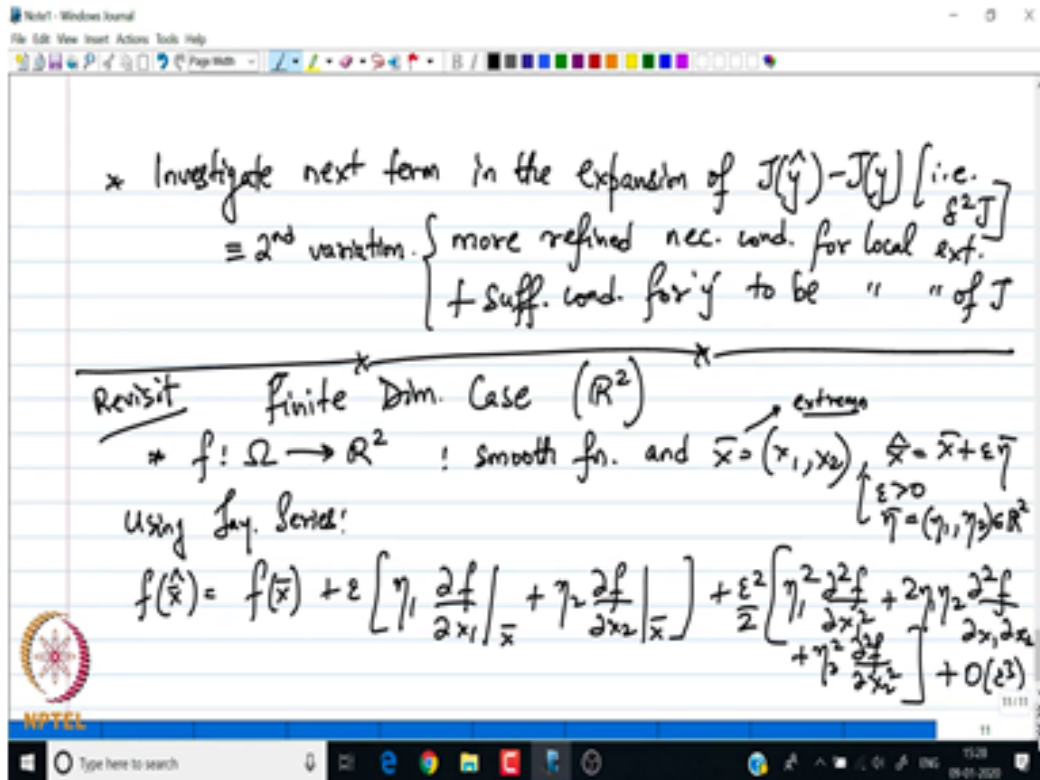 Note1 - Windows Journal
File Edit View Insert Actions Tools Help
Page Width
* Investigate next term in the expansion of J(ŷ) - J(y) [i.e. δ²J]
≡ 2nd variation. { more refined nec. cond. for local ext.
+ suff. cond. for y to be " " of J
Revisit Finite Dim. Case (ℝ²)
* f: Ω → ℝ² : smooth fn. and x̄ = (x₁, x₂), x̂ = x̄ + εη̄
extrema
ε>0
η̄ = (η₁, η₂) ∈ ℝ²
Using Tay. Series:
f(x̂) = f(x̄) + ε [η₁ ∂f/∂x₁|x̄ + η₂ ∂f/∂x₂|x̄] + ε²/2 [η₁² ∂²f/∂x₁² + 2η₁η₂ ∂²f/∂x₁∂x₂
+ η₂² ∂²f/∂x₂²] + O(ε³)
11/11
NPTEL
11
Type here to search
ENG
15:28
09-01-2020